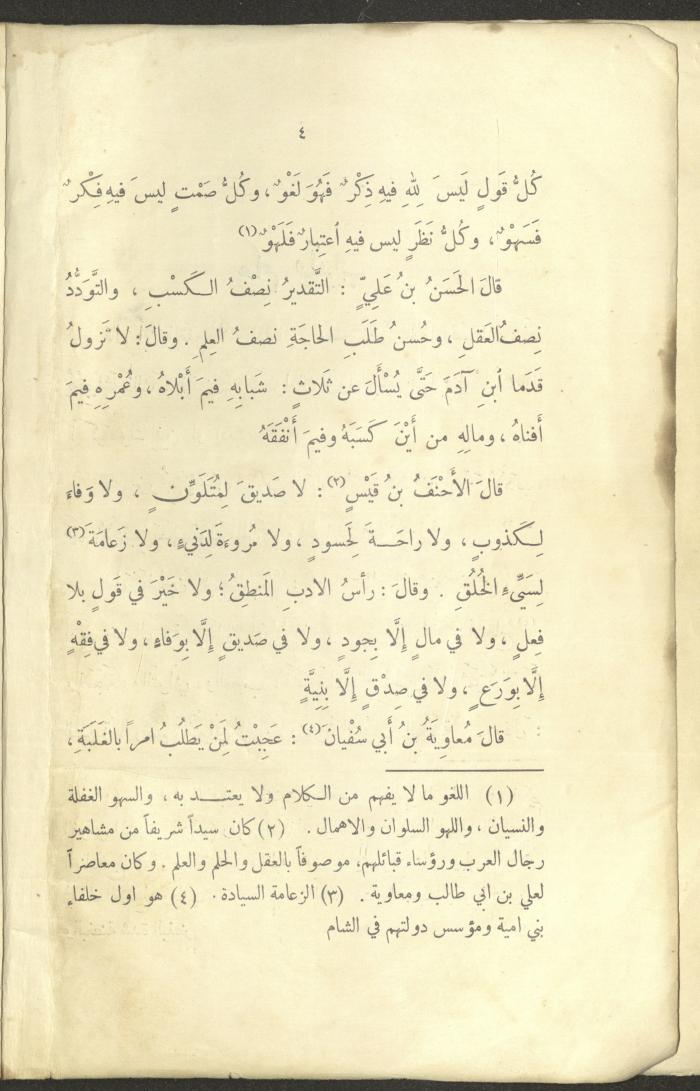 ٤
كُلُّ قَولٍ لَيسَ لِلهِ فيهِ ذِكْرٌ فَهُوَ لَغْوٌ ، وكُلُّ صَمْتٍ ليسَ فيهِ فِكْرٌ
فَسَهْوٌ ، وكُلُّ نَظَرٍ ليس فيهِ ٱعتِبارٌ فَلَهْوٌ (١)
قالَ الحَسَنُ بنُ عَلِيٍّ : التَّقديرُ نِصْفُ الكَسْبِ ، والتَّوَدُّدُ
نِصفُ العَقلِ ، وحُسنُ طَلَبِ الحاجَةِ نصفُ العِلمِ . وقالَ : لا تَزولُ
قَدَما ٱبنِ آدَمَ حَتَّى يُسْأَلَ عن ثَلاثٍ : شَبابِهِ فيمَ أَبْلاهُ ، وعُمْرِهِ فيمَ
أَفناهُ ، ومالِهِ من أَيْنَ كَسَبَهُ وفيمَ أَنْفَقَهُ
قالَ الأَحْنَفُ بنُ قَيْسٍ (٢) : لا صَديقَ لِمُتَلَوِّنٍ ، ولا وَفاءَ
لِكَذوبٍ ، ولا راحَةَ لِحَسودٍ ، ولا مُروءةَ لِدَنيءٍ ، ولا زَعامَةَ (٣)
لِسَيِّءِ الخُلُقِ . وقالَ : رأسُ الادبِ المَنطِقُ ؛ ولا خَيْرَ في قَولٍ بلا
فِعلٍ ، ولا في مالٍ إِلَّا بِجودٍ ، ولا في صَديقٍ إِلَّا بِوَفاءٍ ، ولا في فِقْهٍ
إِلَّا بِوَرَعٍ ، ولا في صِدْقٍ إِلَّا بِنِيَّةٍ
قالَ مُعاوِيَةُ بنُ أَبي سُفْيانَ (٤) : عَجِبْتُ لِمَنْ يَطلُبُ امراً بالغَلَبَةِ ،
(١) اللغو ما لا يفهم من الكلام ولا يعتد به ، والسهو الغفلة
والنسيان ، واللهو السلوان والاهمال . (٢) كان سيداً شريفاً من مشاهير
رجال العرب ورؤساء قبائلهم، موصوفاً بالعقل والحلم والعلم . وكان معاصراً
لعلي بن ابي طالب ومعاوية . (٣) الزعامة السيادة . (٤) هو اول خلفاء
بني امية ومؤسس دولتهم في الشام